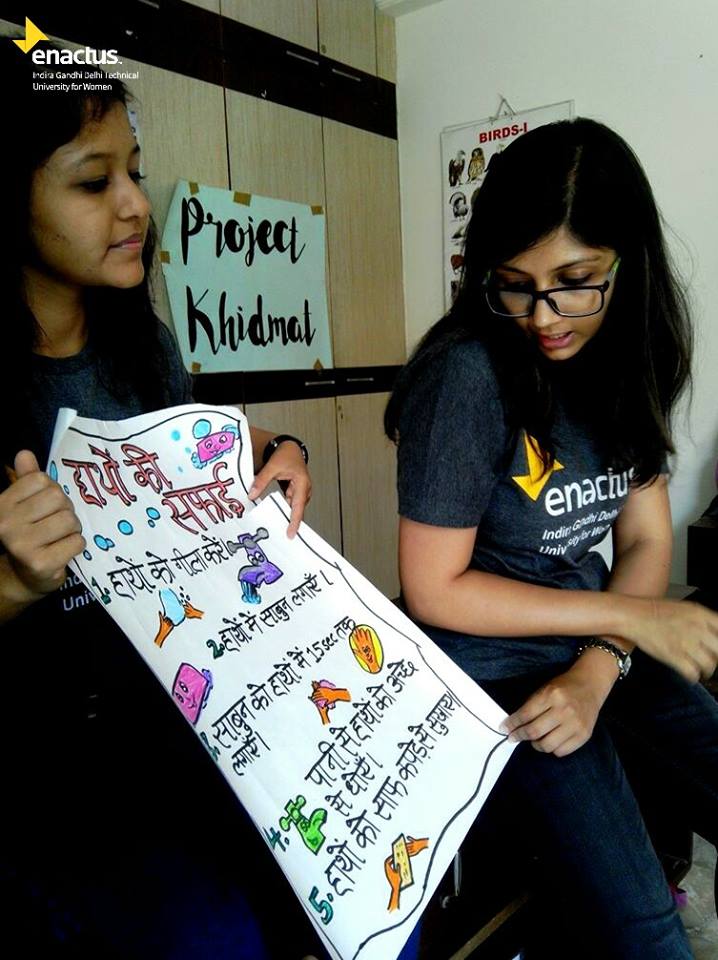 enactus.
Indira Gandhi Delhi Technical
University for Women
BIRDS-I
Project
Khidmat
हाथों की
सफाई
1. हाथों को गीला करें।
2. हाथों में साबुन लगाएँ।
3. साबुन को हाथों में 15 sec तक
लगाएँ।
4. पानी से हाथों को अच्छे
से धोएँ।
5. हाथों को साफ कपड़े से सुखाएं।
enactus
Indira Gandhi Delhi
University for Wom
Uni